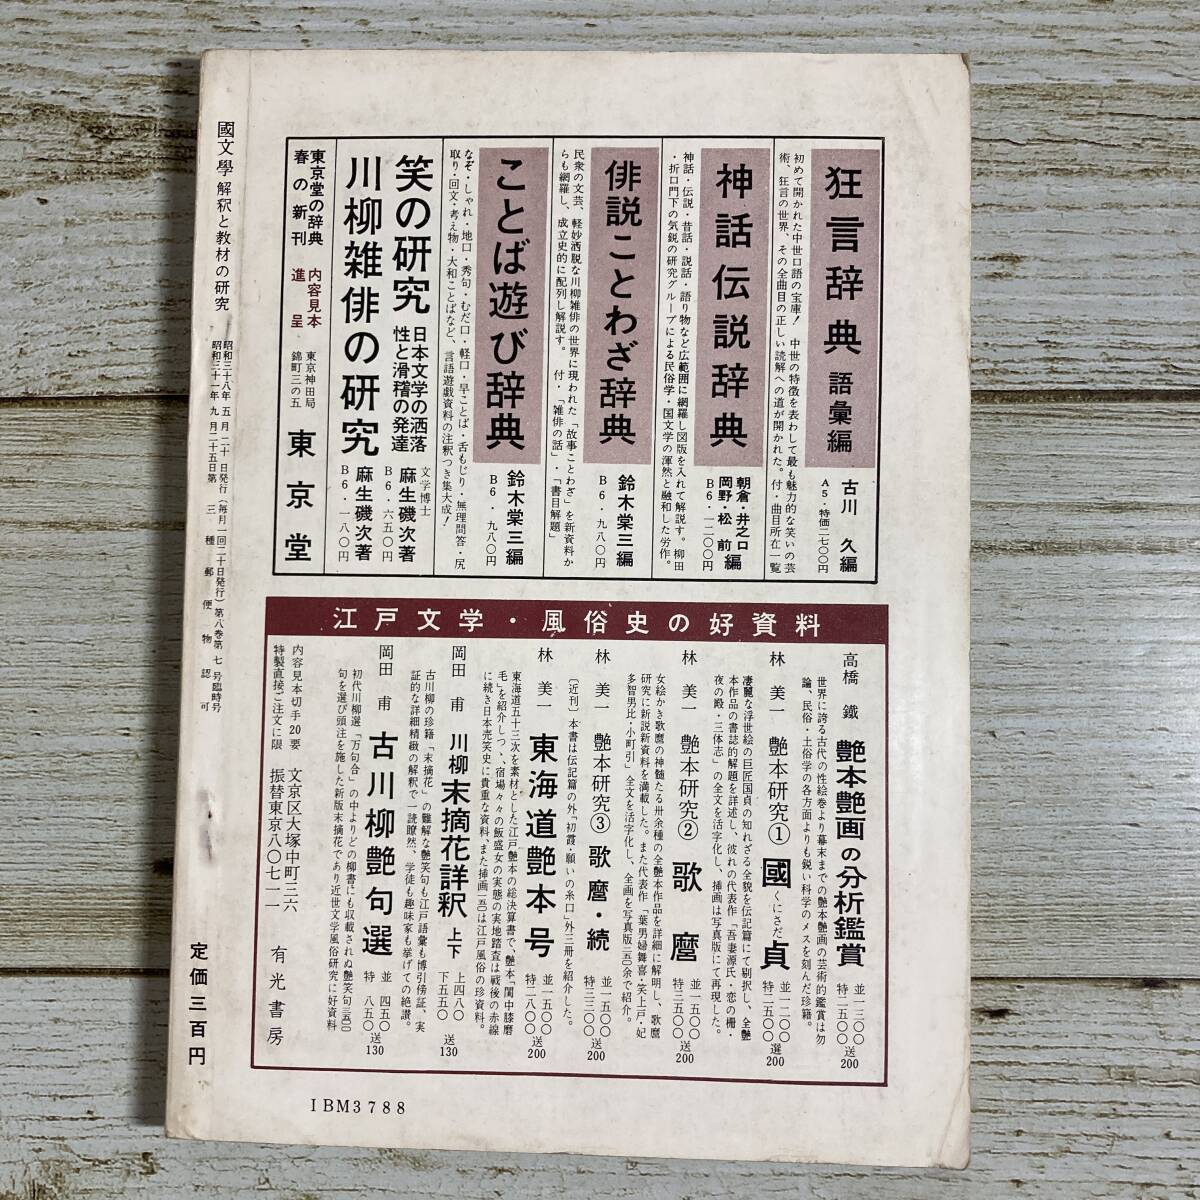 國文學 解釈と教材の研究
昭和三十八年 五 月 二十 日発行(毎月一回二十日発行)第八巻第 七 号臨時号
昭和三十一年 九 月二十五日第 三 種 郵 便 物 認 可
定価三百円
狂言辞典 語彙編
古川 久編
A5・特価二七〇〇円
初めて開かれた中世口語の宝庫! 中世の特徴を表わして最も魅力的な笑いの芸
術、狂言の世界、その全曲目の正しい読解への道が開かれた。付・曲目所在一覧
神話伝説辞典
朝倉・井之口
岡野・松 前編
B6・一二〇〇円
神話・伝説・昔話・説話・語り物など広範囲に網羅し図版を入れて解説す。柳田
・折口門下の気鋭の研究グループによる民俗学・国文学の渾然と融和した労作。
俳説ことわざ辞典
鈴木棠三編
B6・九八〇円
民衆の文芸、軽妙洒脱な川柳雑俳の世界に現われた「故事ことわざ」を新資料か
らも網羅し、成立史的に配列し解説す。 付・「雑俳の話」・「書目解題」
ことば遊び辞典
鈴木棠三編
B6・九八〇円
なぞ・しゃれ・地口・秀句・むだ口・軽口・早ことば・舌もじり・無理問答・尻
取り・回文・考え物・大和ことばなど、言語遊戯資料の注釈つき集大成!
笑の研究 日本文学の洒落
性と滑稽の発達
文学博士
麻生磯次著
B6・六五〇円
川柳雑俳の研究
麻生磯次著
B6・一八〇円
東京堂の辞典
春の新刊
内容見本
進呈
東京神田局
錦町三の五
東京堂
江戸文学・風俗史の好資料
高橋 鐵 艶本艶画の分析鑑賞
並一三〇〇
特二五〇〇
送200
世界に誇る古代の性絵巻より幕末までの艶本艶画の芸術的鑑賞は勿
論、民俗・土俗学の各方面よりも鋭い科学のメスを刻んだ珍籍。
林 美一 艶本研究① 國貞
くにさだ
並一二〇〇
特二五〇〇
選200
凄麗な浮世絵の巨匠国貞の知れざる全貌を伝記篇にて剔択し、全艶
本作品の書誌的解題を詳述し、彼れの代表作「吾妻源氏・恋の柵・
夜の殿・三体志」の全文を活字化し、挿画は写真版にて再現した。
林 美一 艶本研究② 歌麿
並一五〇〇
特三五〇〇
送200
女絵かき歌麿の神髄たる卅余種の全艶本作品を詳細に解明し、歌麿
研究に新説新資料を満載した。また代表作「葉男婦舞喜・笑上戸・妃
多智男比・小町引」全文を活字化し、全画を写真版二五〇余で紹介。
林 美一 艶本研究③ 歌麿・続
並一五〇〇
特三三〇〇
送200
〔近刊〕本書は伝記篇の外「初霞・願いの糸口」外三冊を紹介した。
林 美一 東海道艶本号
並一五〇〇
特二八〇〇
送200
東海道五十三次を素材とした江戸艶本の総決算書で、艶本「閨中膝磨
毛」を紹介しつゝ、宿場々々の飯盛女の実態の実地踏査は戦後の赤線
に続き日本売笑史に貴重な資料。また挿画一五〇は江戸風俗の珍資料。
岡田 甫 川柳 末摘花詳釈 上下
上四八〇
下五五〇
送130
古川柳の珍籍「末摘花」の難解な艶笑句も江戸語彙も博引傍証、実
証的な詳細精緻の解釈で一読瞭然、学徒も趣味家も挙げての絶讃。
岡田 甫 古川柳艶句選
並 四五〇
特 八五〇
送130
初代川柳選「万句合」の中よりどの柳書にも収載されぬ艶笑句三五〇〇
句を選び頭注を施した新版末摘花であり近世文学風俗研究に好資料
内容見本切手20要
特製直接ご注文に限
文京区大塚中町三六
振替東京八〇七一一
有光書房
IBM3788